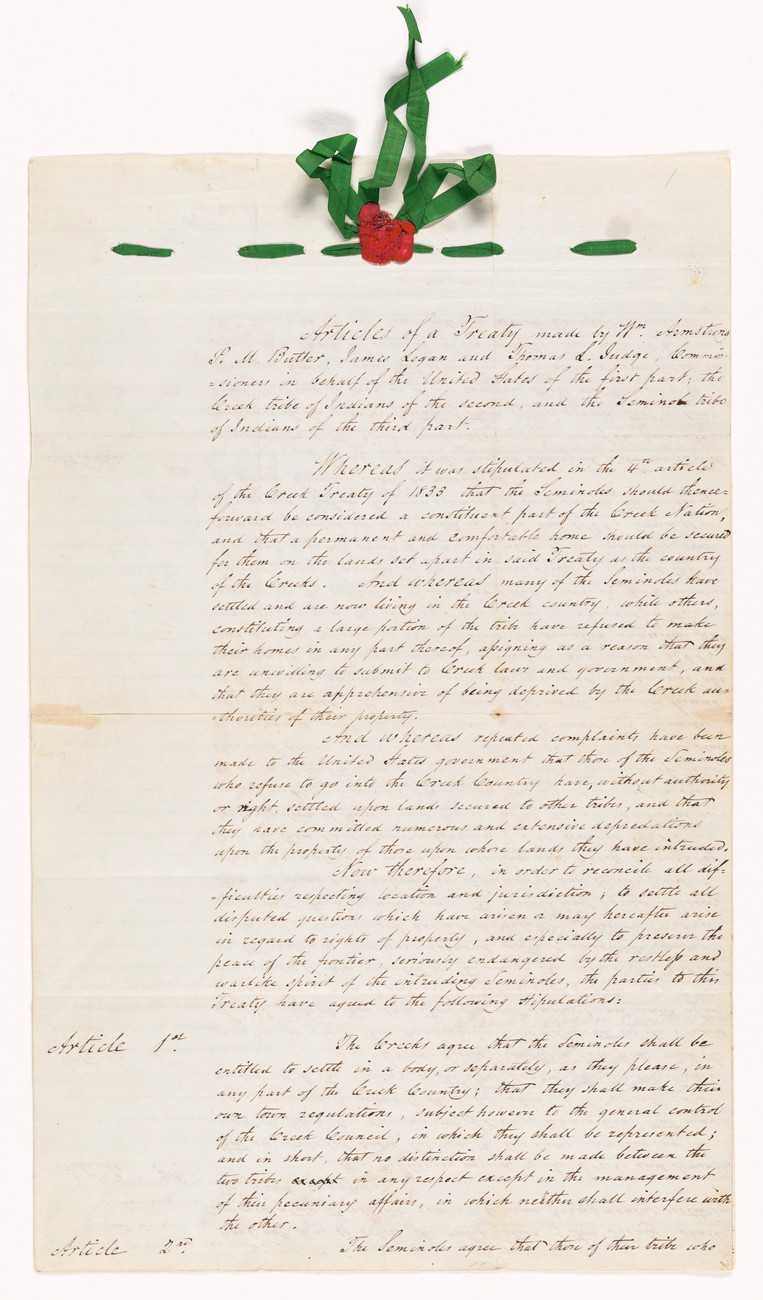 Articles of a Treaty made by Wm. Armstrong
P. M. Butler, James Logan and Thomas L. Judge, Commis-
-sioners in behalf of the United States of the first part; the
Creek tribe of Indians of the second, and the Seminole tribe
of Indians of the third part.
Whereas it was stipulated in the 4th article
of the Creek Treaty of 1833 that the Seminoles should thence-
forward be considered a constituent part of the Creek Nation,
and that a permanent and comfortable home should be secured
for them on the lands set apart in said Treaty as the country
of the Creeks. And whereas many of the Seminoles have
settled and are now living in the Creek country, while others,
constituting a large portion of the tribe have refused to make
their homes in any part thereof, assigning as a reason that they
are unwilling to submit to Creek laws and government, and
that they are apprehensive of being deprived by the Creek au-
-thorities of their property.
And whereas repeated complaints have been
made to the United States government that those of the Seminoles
who refuse to go into the Creek Country have, without authority
or right, settled upon lands secured to other tribes, and that
they have committed numerous and extensive depredations
upon the property of those upon whose lands they have intruded.
Now therefore, in order to reconcile all dif-
-ficulties respecting location and jurisdiction; to settle all
disputed questions which have arisen or may hereafter arise
in regard to rights of property, and especially to preserve the
peace of the frontier, seriously endangered by the restless and
warlike spirit of the intruding Seminoles, the parties to this
Treaty have agreed to the following stipulations:
Article 1st. The Creeks agree that the Seminoles shall be
entitled to settle in a body, or separately, as they please, in
any part of the Creek Country; that they shall make their
own town regulations, subject however to the general control
of the Creek Council, in which they shall be represented;
and in short, that no distinction shall be made between the
two tribes in any respect except in the management
of their pecuniary affairs, in which neither shall interfere with
the other.
Article 2nd. The Seminoles agree that those of their tribe who